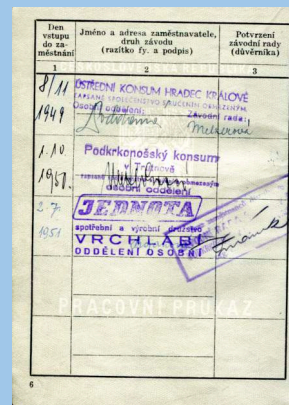 Den
vstupu
do za-
městnání
Jméno a adresa zaměstnavatele,
druh závodu
(razítko fy. a podpis)
Potvrzení
závodní rady
(důvěrníka)
1
2
3
8/11
1949
ÚSTŘEDNÍ KONSUM HRADEC KRÁLOVÉ
ZAPSANÉ SPOLEČENSTVO S RUČENÍM OBMEZENÝM
Osobní oddělení:
Závodní rada:
1.10.
1950.
Podkrkonošský konsum
v Trutnově
zapsané
obmezeným
osobní oddělení
2.7.
1951
JEDNOTA
spotřební a výrobní družstvo
VRCHLABÍ
ODDĚLENÍ OSOBNÍ
PRACOVNÍ PRŮKAZ
6